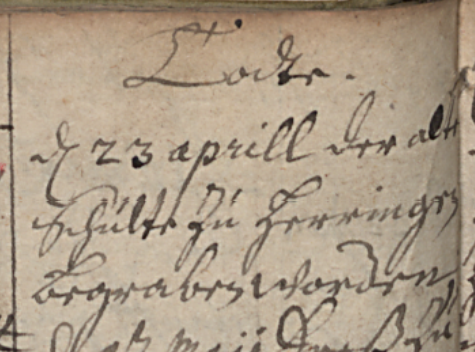 Todte.
d 23 aprill der alte
Schulte zu Herringen
begraben worden